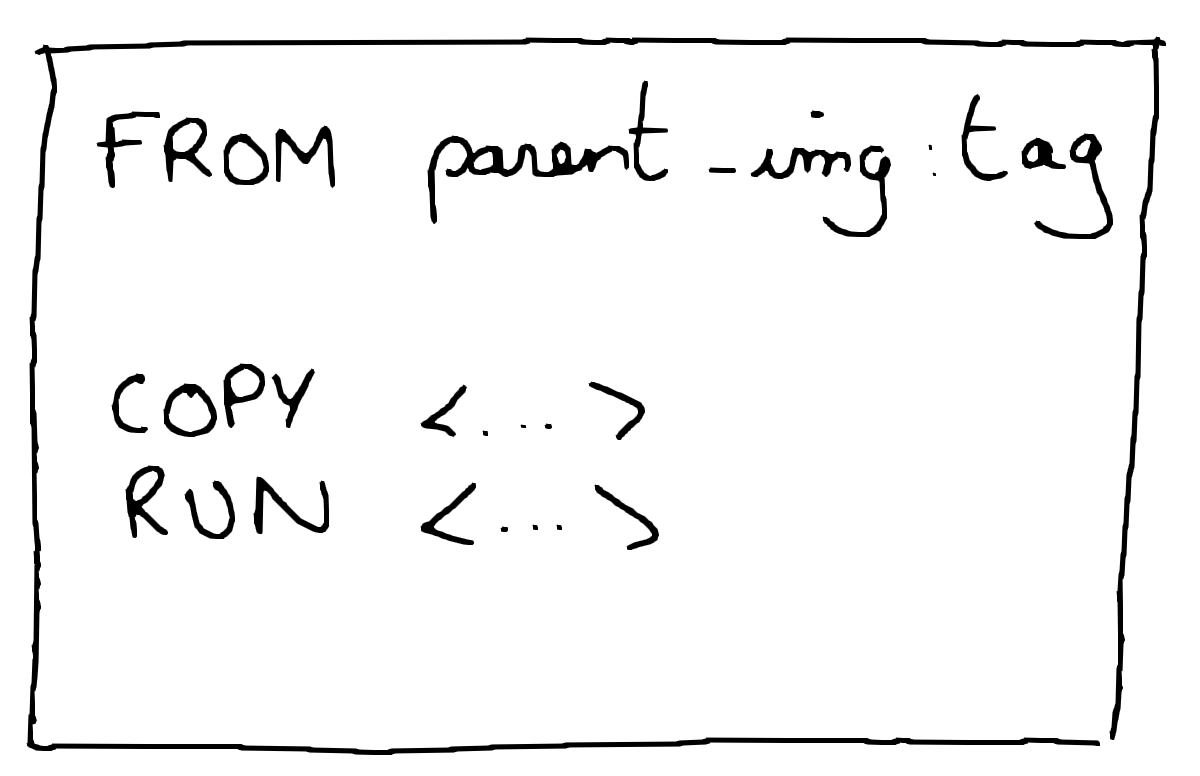 FROM parent_img:tag
COPY <....>
RUN <....>